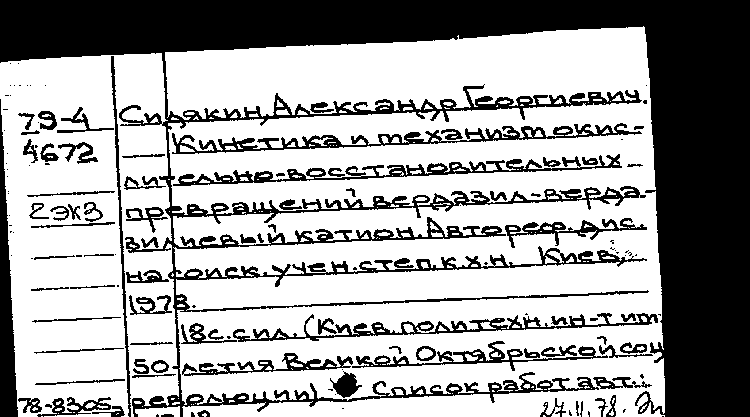 79-4 Сидякин, Александр Георгиевич.
4672 Кинетика и механизм окис-
лительно-восстановительных
2 экз превращений вердазил-верда-
зилиевый катион. Автореф. дис.
на соиск. учен. степ. к.х.н. Киев,
1978.
18с. с ил. (Киев. политехн. ин-т им.
50-летия Великой Октябрьской соц
78-8305 революции) Список работ авт.:
27.11.78.